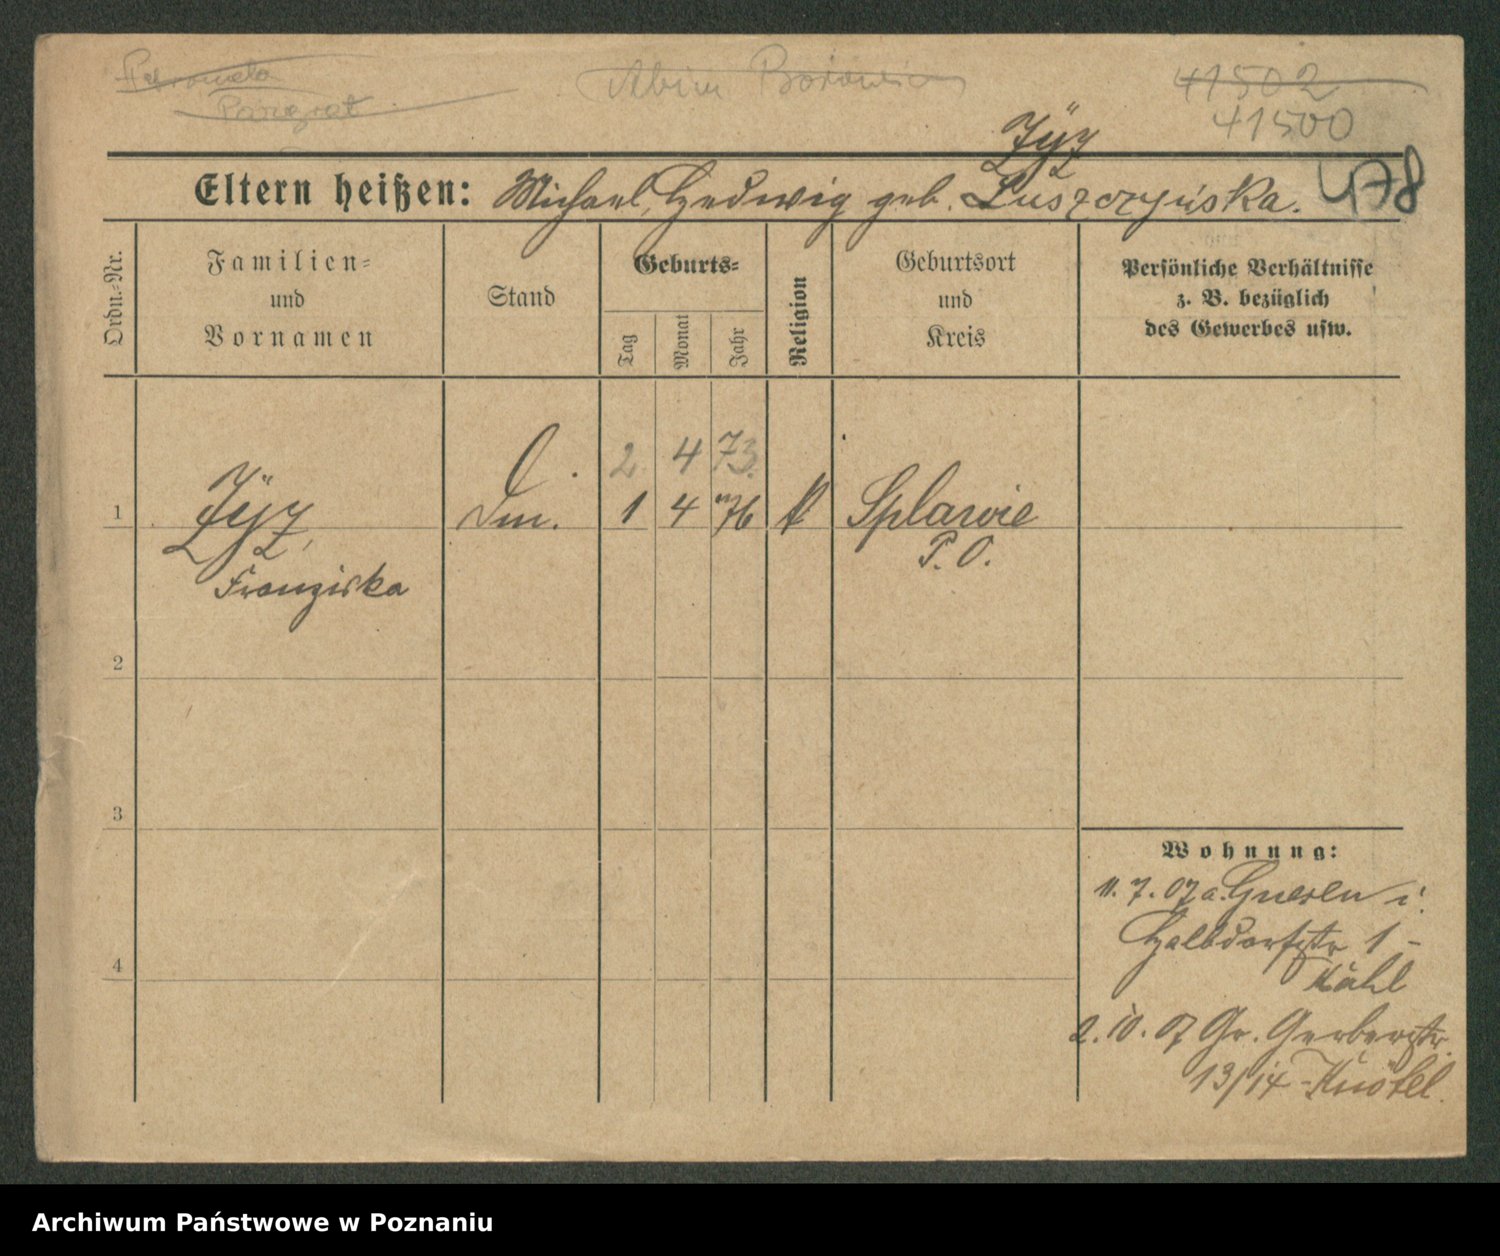 Petronela
Pangrat
41502
41500
Zÿz
Eltern heißen: Michael, Hedwig geb. Luszczyńska. 478
Ordn.-Nr.
Familien-
und
Vornamen
Stand
Geburts-
Tag
Monat
Jahr
Religion
Geburtsort
und
Kreis
Persönliche Verhältnisse
z. B. bezüglich
des Gewerbes usw.
2 4 73.
1 Zÿz, 1 4 76 k Splawie
P. O.
Franziska
2
3
4
Wohnung:
11. 7. 07 a. Gnesen i.
Halbdorfstr 1 -
2. 10. 07 Gr. Gerberstr.
13/14 -
Archiwum Państwowe w Poznaniu